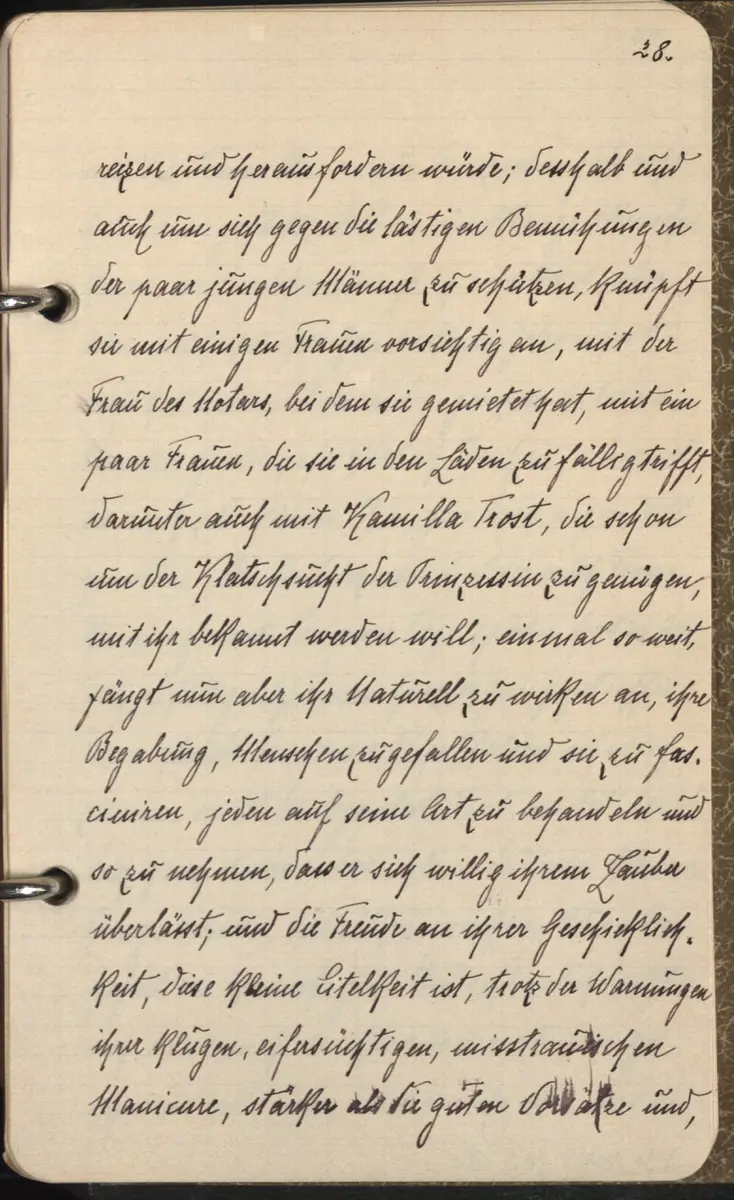 28.
reizen und herausfordern würde; desshalb und
auch um sich gegen die lästigen Bemühungen
der paar jungen Männer zu schützen, knüpft
sie mit einigen Frauen vorsichtig an, mit der
Frau des Notars, bei dem sie gemietet hat, mit ein
paar Frauen, die sie in den Läden zufällig trifft,
darunter auch mit Kamilla Trost, die schon
um der Klatschsucht der Prinzessin zu genügen,
mit ihr bekannt werden will; einmal so weit,
fängt nun aber ihr Naturell zu wirken an, ihre
Begabung, Menschen zu gefallen und sie zu fas-
ciniren, jeden auf seine Art zu behandeln und
so zu nehmen, dass er sich willig ihrem Zauber
überlässt; und die Freude an ihrer Geschicklich-
keit, diese kleine Eitelkeit ist, trotz der Warnungen
ihrer klugen, eifersüchtigen, misstrauischen
Manicure, stärker als die guten Vorsätze und,